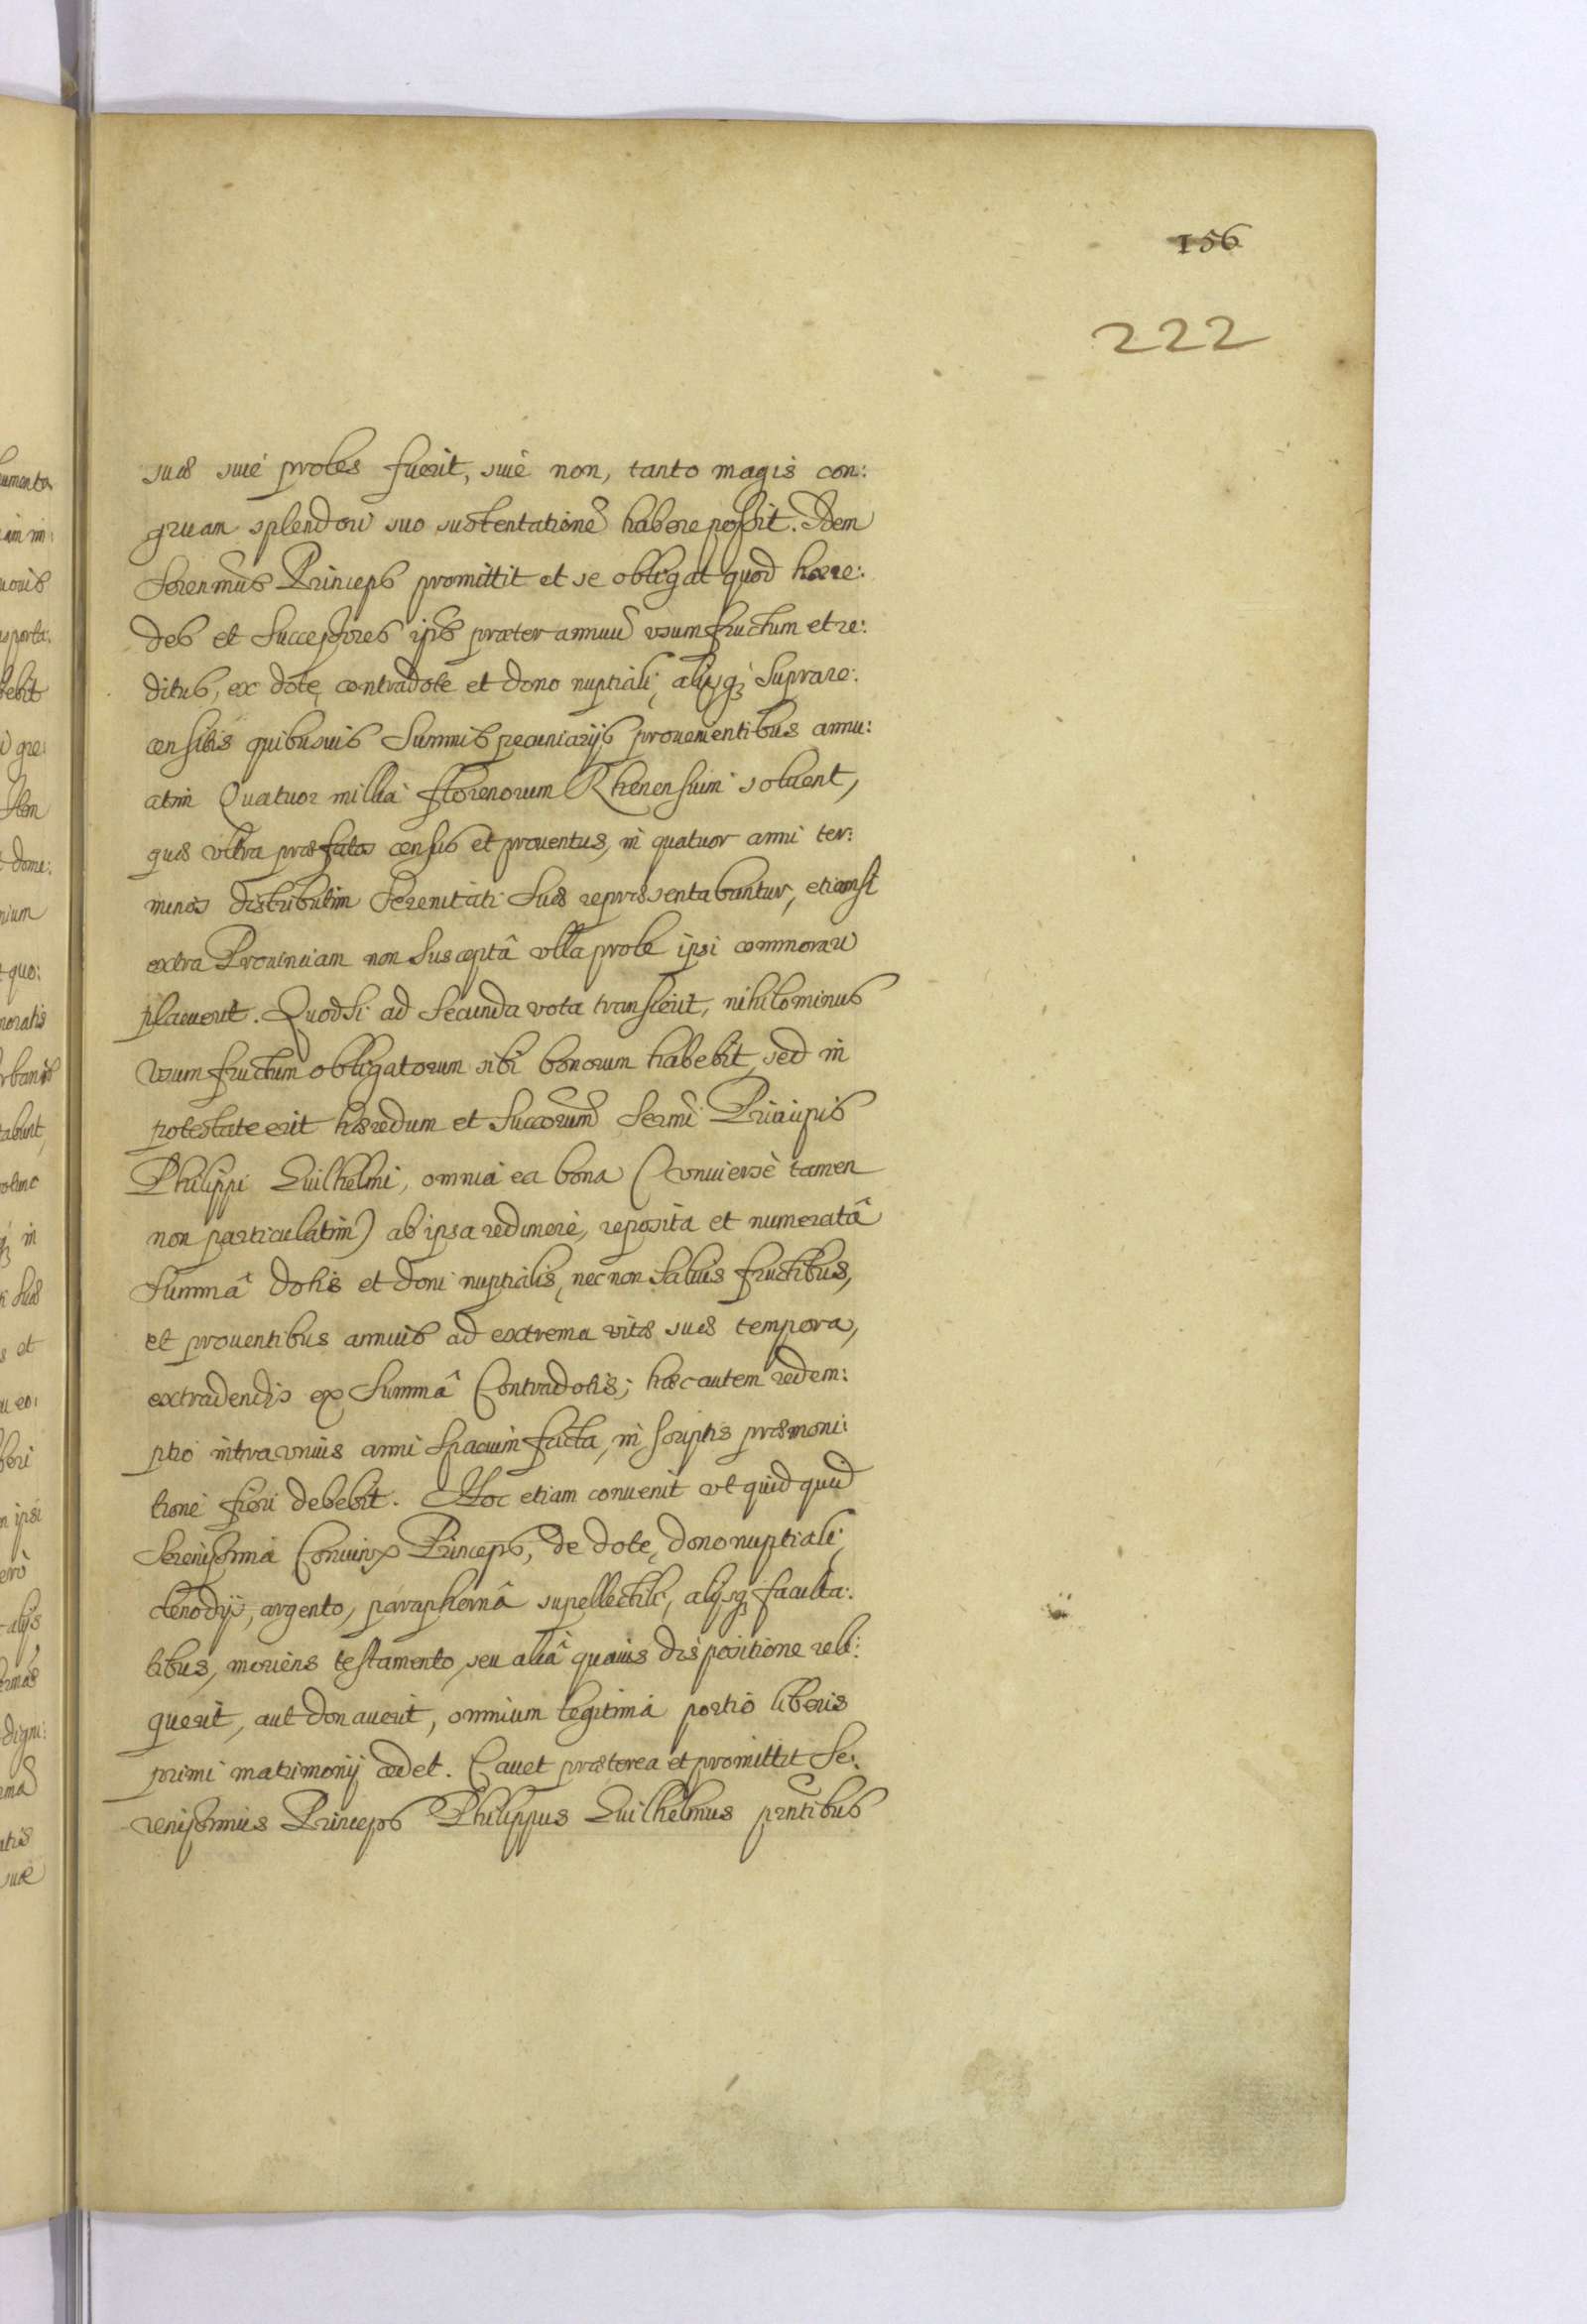 156
222
suæ siue proles fuerit, siue non, tanto magis con:
gruam splendori suo sustentationē habere possit. Idem
Serenmus Princeps promittit et se obligat quod hære:
des et Successores ipsˢ præter annuū usumfructum et re:
ditus, ex dote, contradote et dono nuptiali, alijsq; Suprare:
censitis quibusuis Summis pecuniarijs prouenientibus annu:
atim Quatuor millia florenorum Rhenensium soluent,
quæ vltra præfatos census et prouentus, in quatuor anni ter:
minos distributim Serenitati Suæ repræsentabuntur, etiamsi
extra Prouinciam non Susceptâ vlla prole ipsi commorari
placuerit. Quodsi ad Secunda vota transierit, nihilominus
vsumfructum obligatorum sibi bonorum habebit, sed in
potestate erit hæredum et Succorum Sermi Principis
Philippi Guilhelmi, omnia ea bona (vniuersè tamen
non particulatim) ab ipsa redimere, reposita et numeratâ
Summâ dotis et doni nuptialis, nec non saluis fructibus,
et prouentibus annuis ad extrema vitæ suæ tempora,
extradendis ex Summâ Contradotis; hæc autem redem:
ptio intra vnius anni Spacium facta, in scriptis præmoni:
tione fieri debebit. Hoc etiam conuenit vt quidquid
Serenissima Coniunx Princeps, de dote, dono nuptiali,
clenodijs, argento, paraphernâ supellectili, alijsq; faculta:
tibus, moriens testamento, seu aliâ quauis dispositione reli:
querit, aut donauerit, omnium legitima portio liberis
primi matrimonij cedet. Cauet præterea et promittit Se:
renissimus Princeps Philippus Guilhelmus prntibus